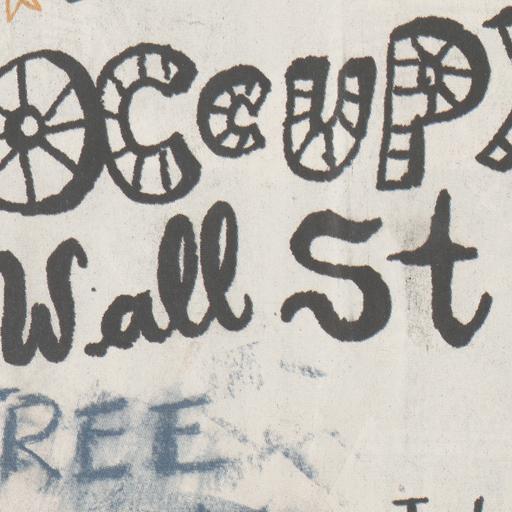 OCCUPY
Wall St
FREE